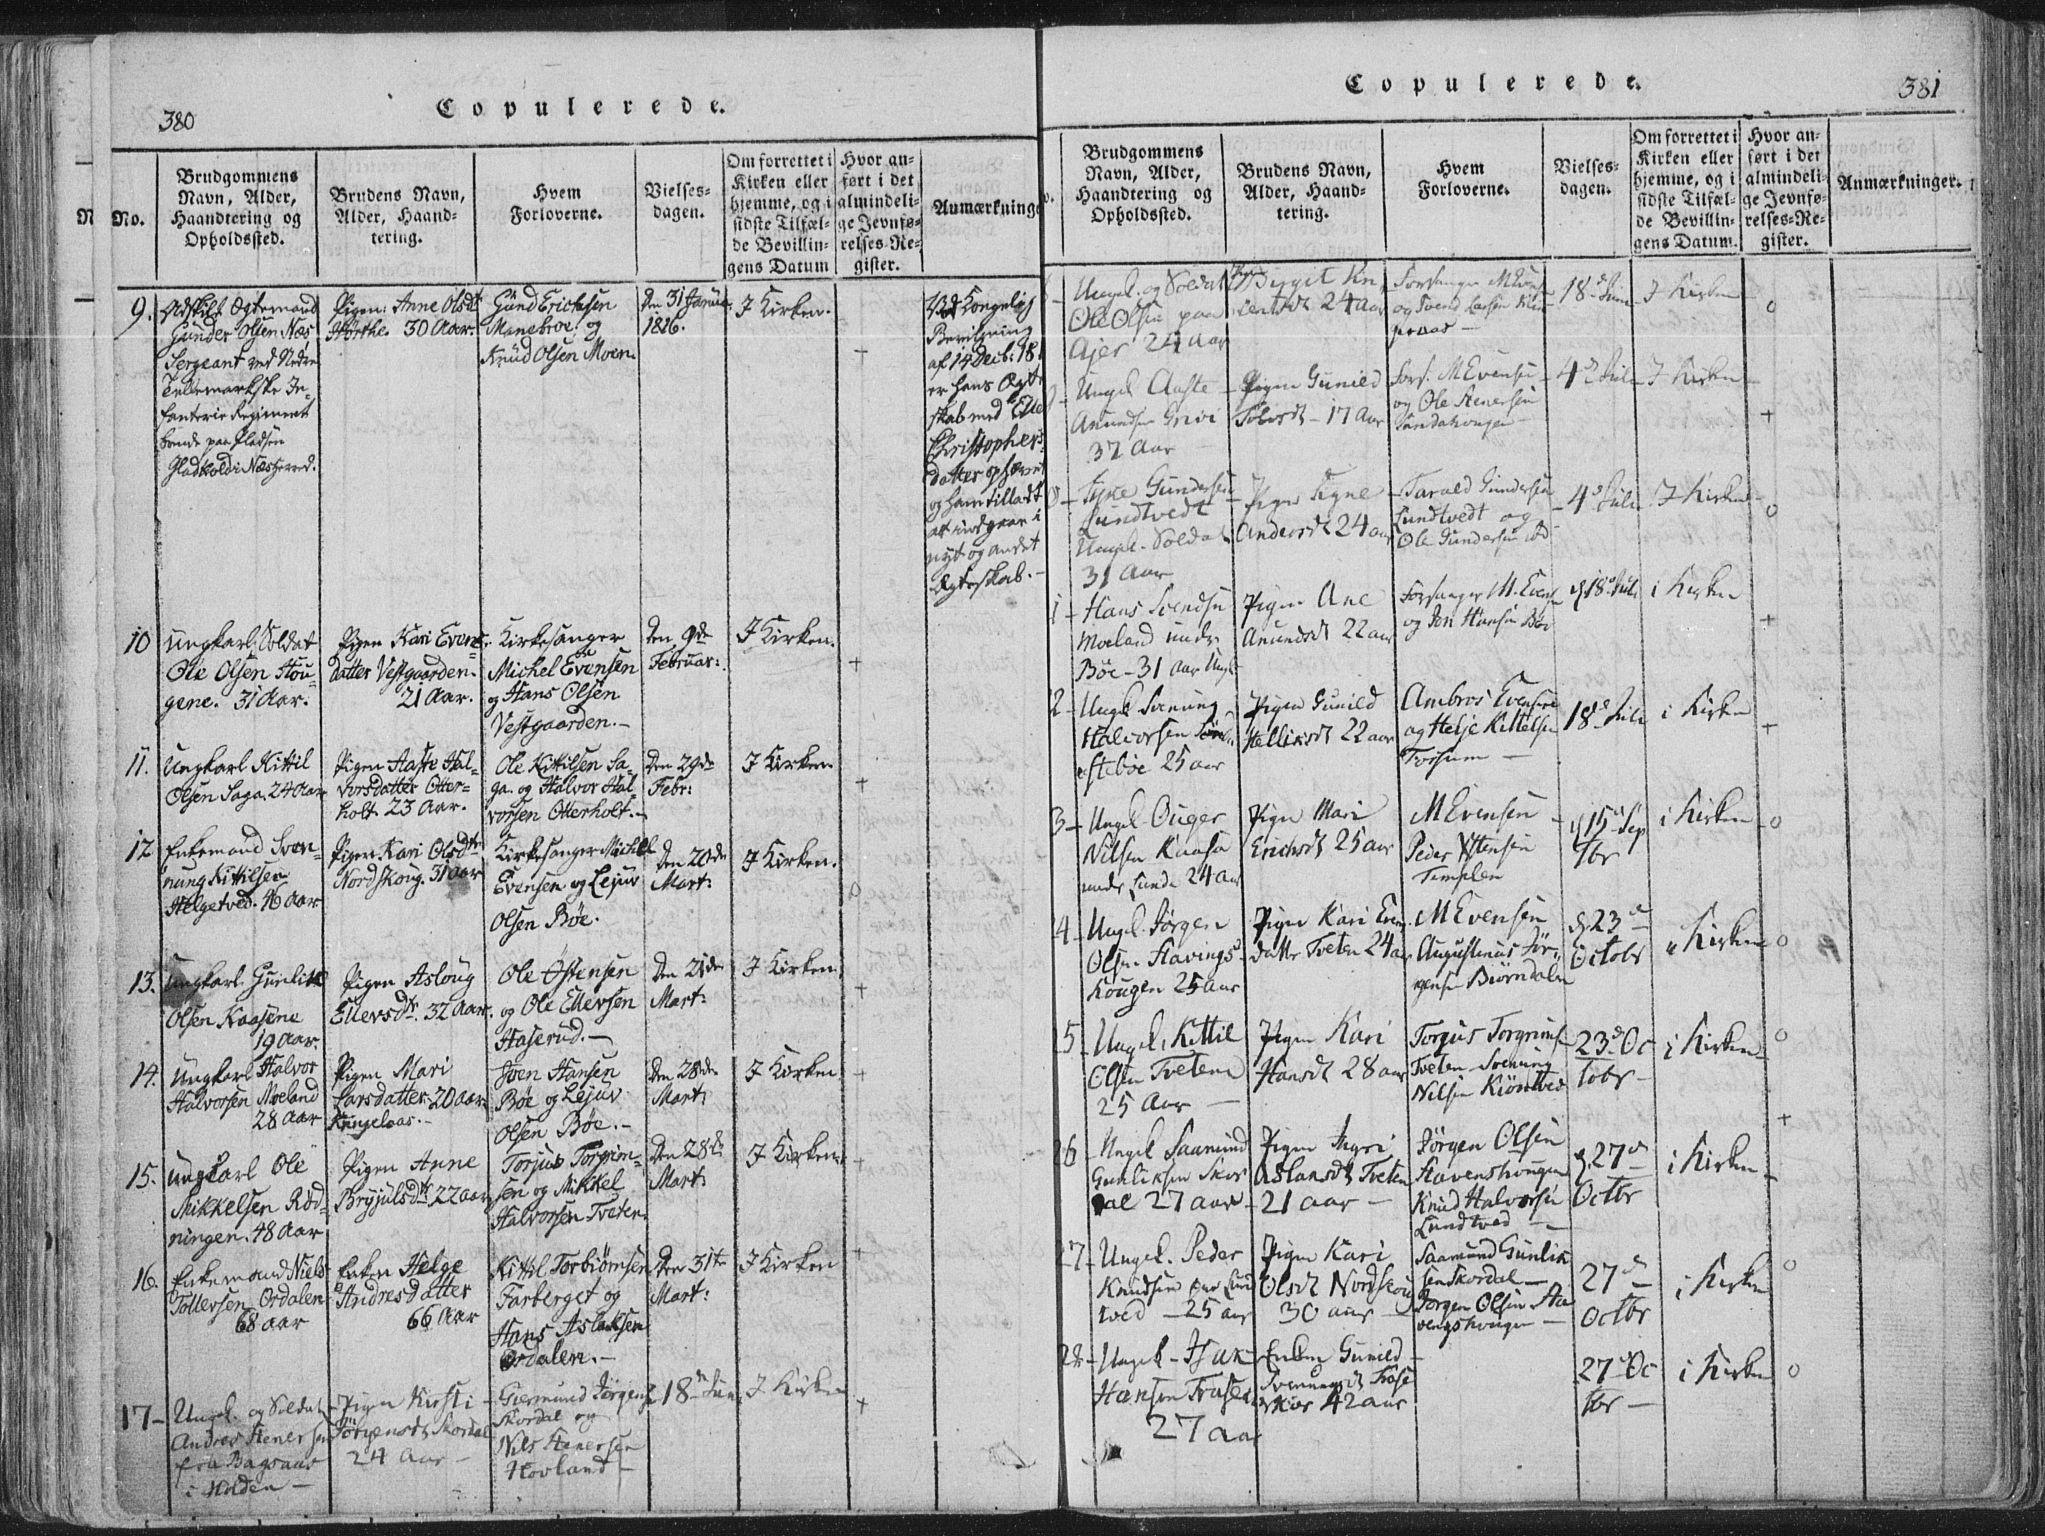 380
Copulerede.
No.
Brudgommens
Navn, Alder,
Haandtering og
Opholdssted.
Brudens Navn,
Alder, Haand-
tering.
Hvem
Forloverne.
Vielses-
dagen.
Om forrettet i
Kirken eller
hjemme, og i
sidste Tilfæl-
de Bevillin-
gens Datum
Hvor an-
ført i det
almindeli-
ge Jevnfø-
relses-Re-
gister.
Anmærkninge
9.
Adskilt Ægtemand
Gunder Olsen Næs
Sergeant ved Nedre
Tellemarkske In-
fanterie Regiment
boende paa Pladsen
i Næsherred.
Pigen: Anne Olsdtr
30 Aar.
Gund Erichsen
Manebroe og
Knud Olsen Moen.
Den 31 Januar
1816.
I Kirken.
+
Ved Kongelig
Bevilgning
af 14 Decb: 181
er hans Ægte
skab med
Christophers
datter ophævet
og ham tilladt
at indgaae i
nyt og andet
Ægteskab.-
10
Ungkarl Soldat
Ole Olsen Hou-
gene. 31 Aar.
Pigen Kari Evens-
datter Vestgaarden.
21 Aar.
Kirkesanger
Michel Evensen
og Hans Olsen
Vestgaarden.-
Den 9de
Februar:
I Kirken.
+
11.
Ungkarl Kittil
Olsen Saga. 24 Aar
Pigen Aaste Hal-
vorsdatter Otter-
holt. 23 Aar.
Ole Kittilsen Sa-
ga. og Halvor Hal-
vorsen Otterholt.-
Den 29de
Febr:
I Kirken
+
12
Enkemand Sven-
nung Kittilsen
Helgetved. 46 Aar
Pigen Kari Olsdtr
Nordskoug. 31 Aar
Kirkesanger Michel
Evensen og Lejuv
Olsen Bøe.
Den 20de
Mart:
I Kirken.
o
13.
Ungkarl Gunlik
Olsen Kaasene
19 Aar.
Pigen Asloug
Ellevsdtr. 32 Aar.
Ole Østensen
og Ole Ellevsen
Haserud.-
Den 21de
Mart:
I Kirken.
+
14.
Ungkarl Halvor
Halvorsen Moeland
28 Aar
Pigen Mari
Larsdatter. 20 Aar
Sven Hansen
Bøe og Lejuv
Olsen Bøe.-
Den 28de
Mart:
I Kirken
+
15.
Ungkarl Ole
Mikkelsen Rød-
ningen. 48 Aar
Pigen Anne
Bryjulsdtr. 22 Aar
Torjus Torgrim-
sen og Mikkel
Halvorsen Tveten.
Den 28de
Mart:
I Kirken.
+
16.
Enkemand Niels
Tollevsen Ordalen
68 Aar
Enken Helge
Andresdatter
66 Aar
Kittil Torbiørnsen
Farberget og
Hans Aslaksen
Ordalen.-
Den 31te
Mart:
I Kirken
+
17-
Ungk. og Soldat
Andres Stenersen
fra Bagaas
i Holden -
Pigen Kirsti
Jörgensdt Skordal
24 Aar -
Giermund Jörgens
Skordal og
Nils Stenersen
Hovland -
18de Jun
I Kirken
+
Copulerede.
381
Brudgommens
Navn, Alder,
Haandtering og
Opholdssted.
Brudens Navn,
Alder, Haand-
tering.
Hvem
Forloverne.
Vielses-
dagen.
Om forrettet i
Kirken eller
hjemme, og i
sidste Tilfæl-
de Bevillin-
gens Datum.
Hvor an-
ført i det
almindeli-
ge Jevnfø-
relses-Re-
gister.
Anmærkninger.
Ungk. og Soldat
Ole Olsen paa
Ajer 24 Aar
Pigen
Birgit Kn
24 aar
Forsanger M Evens
og Svend Larsen
18d Juni
I Kirken
o
Ungk Aaste
Anundsen Grivi
37 Aar
Pigen Gunild
Tolvsdt - 17 Aar
Fors. M Evensen
og Ole Stenersen
4d Juli
I Kirken
+
Gundersen
Lundtvedt
Ungk. Soldat
31 Aar
Pigen Signe
Andersdt 24 aar
Tarald Gundersen
Lundtvedt og
Ole Gundersen ibd
4d Juli
I Kirken
o
1-
Hans Svendsen
Moeland under
Bøe - 31 Aar Ungk
Pigen Ane
Anundsdt 22 aar
Forsanger M. Evens
og Jon Hansen Bøe
d 18d Juli
i Kirken
+
2-
Ungk Svenung
Halvorsen
25 aar
Pigen Gunild
22 aar
Ambros Evensen
og Helje Kittelsen
Forsum -
18d Juli
i Kirken
+
3-
Ungk Ouger
Nilsen Kaasa
under Lunde 24 aar
Pigen Mari
Erichsdt 25 aar
M Evensen
Peder
Templen
d 15d Sep
tbr
i Kirken
o
4-
Ungk Jörgen
Olsen Havings-
kougen 25 aar
Pigen Kari Evens
datter Tveten 24 aar
M Evensen
Augustinus Jör-
gensen Biørndalen
d. 23de
Octobr
i Kirken
o
5-
Ungk. Kittil
Olsen Tveten
25 Aar -
Pigen Kari
Hansdt 28 aar
Torjus Torgrims
Tveten Svenung
Nilsen
23d Oc
tobr -
i Kirken
o
26
Ungk Saamund
Gunliksen Skor
dal 27 aar
Pigen Ingri
Aslansdt Tveten
21 aar -
Jörgen Olsen
Havenshougen
Knud Halvorsen
Lundtved -
d. 27de
Octbr
i Kirken
+
27-
Ungk. Peder
Knudsen Lund
tved - 25 aar
Pigen Kari
Olsdt Nordskoug
30 aar -
Saamund Gunlik
sen Skordal -
Jörgen Olsen Ha
venshougen -
27de
Octbr
i Kirken
o
28-
Ungk - Isak
Hansen
27 aar
Enken Gunild
42 aar
27d Oc
tbr -
i Kirken
o